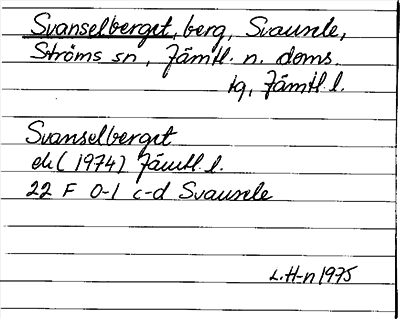 Svanselberget, berg, Svansele,
Ströms sn, Jämtl. n. doms.
tg, Jämtl. l.
Svanselberget
ek (1974) Jämtl. l.
22 F 0-1 c-d Svansele
L.H-n 1975